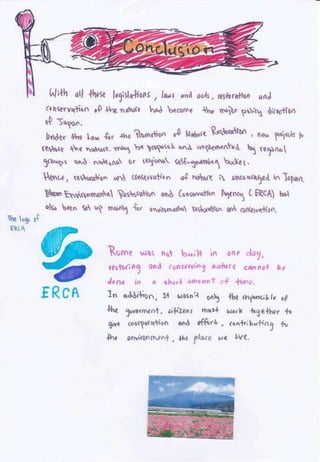 Conclusion
With all those legislations, laws and acts, restoration and
conservation of the nature had become the major policy direction
of Japan.
Under the Law for the Promotion of Nature Restoration, new projects to
restore the nature may be proposed and implemented by regional
groups and national or regional self-governing bodies.
Hence, restoration and conservation of nature is encouraged in Japan.
Environmental Restoration and Conservation Agency (ERCA) had
also been set up mainly for environmental restoration and conservation.
The logo of
ERCA
ERCA
Rome was not built in one day,
restoring and conserving nature cannot be
done in a short amount of time.
In addition, It wasn't only the responsible of
the goverment, citizens must work together to
give coorporation and effort, contributing to
the environment, the place we live.